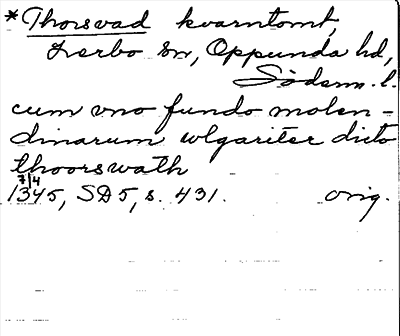 *Thorsvad kvarntomt,
Lerbo sn, Oppunda hd,
Söderm. l.
cum vno fundo molen-
dinarum wlgariter dicto
thoorswath
7/4
1345, SD5, s. 431. orig.